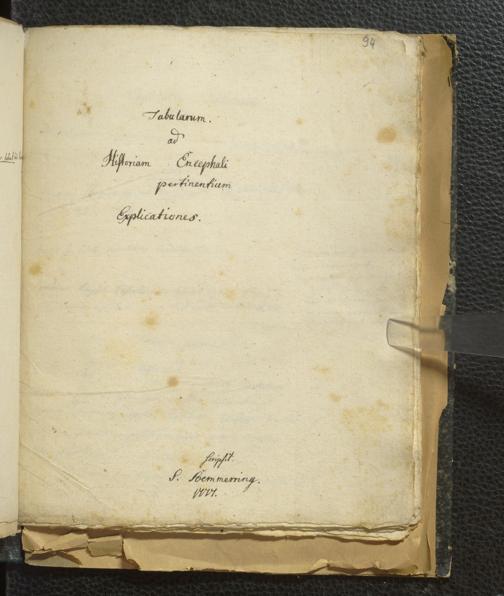 94
Tabularum.
ad
Historiam Encephali
pertinentium
Explicationes.
scripsit.
S. Soemmerring.